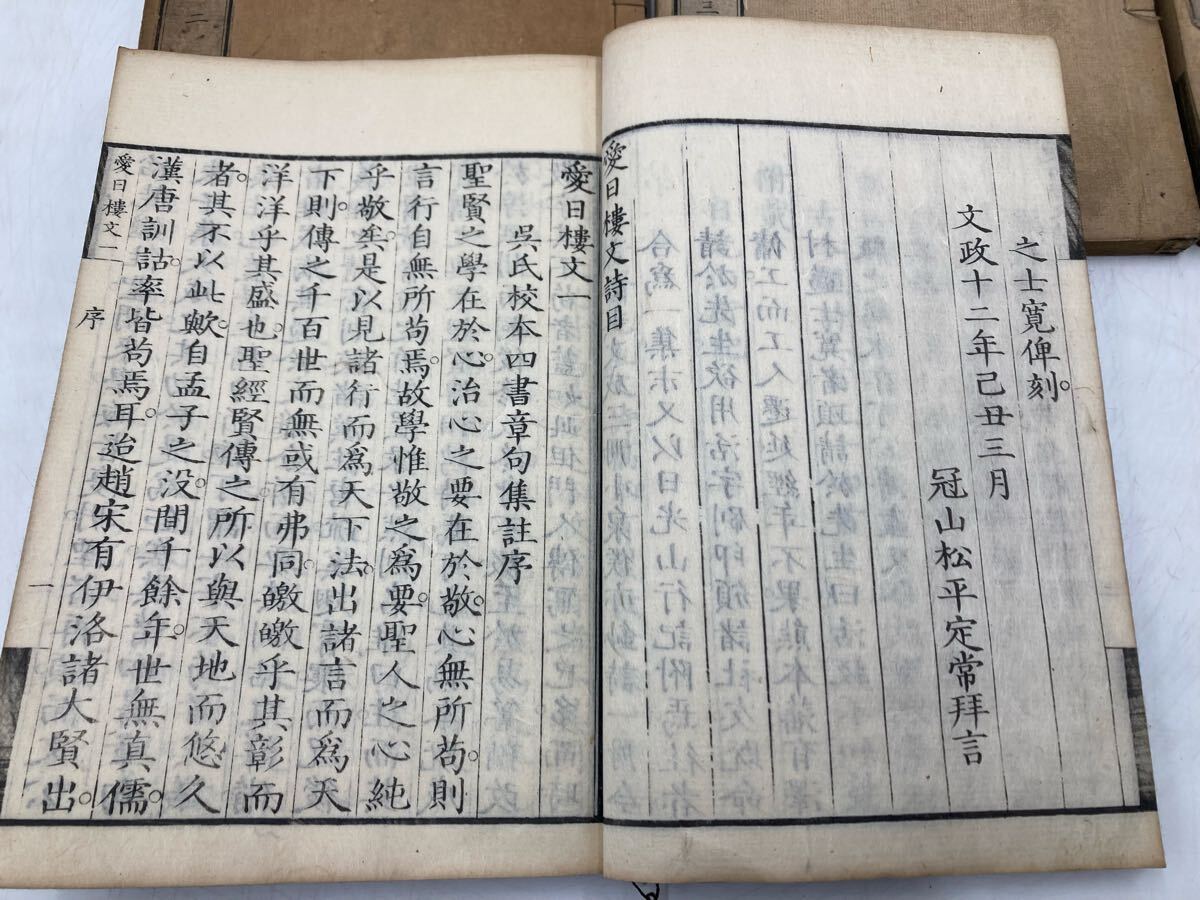 之士寬俾刻。
文政十二年己丑三月
冠山松平定常拜言
愛日樓文詩目
愛日樓文一
吳氏校本四書章句集註序
聖賢之學在於心。治心之要在於敬。心無所苟。則
言行自無所苟焉。故學惟敬之為要。聖人之心純
乎敬矣。是以見諸行而為天下法。出諸言而為天
下則。傳之千百世而無或有弗同。皦皦乎其彰而
洋洋乎其盛也。聖經賢傳之所以與天地而悠久
者。其不以此歟。自孟子之沒。間千餘年。世無真儒。
漢唐訓詁。率皆苟焉耳。迨趙宋有伊洛諸大賢出。
愛日樓文一
序
一
二
三